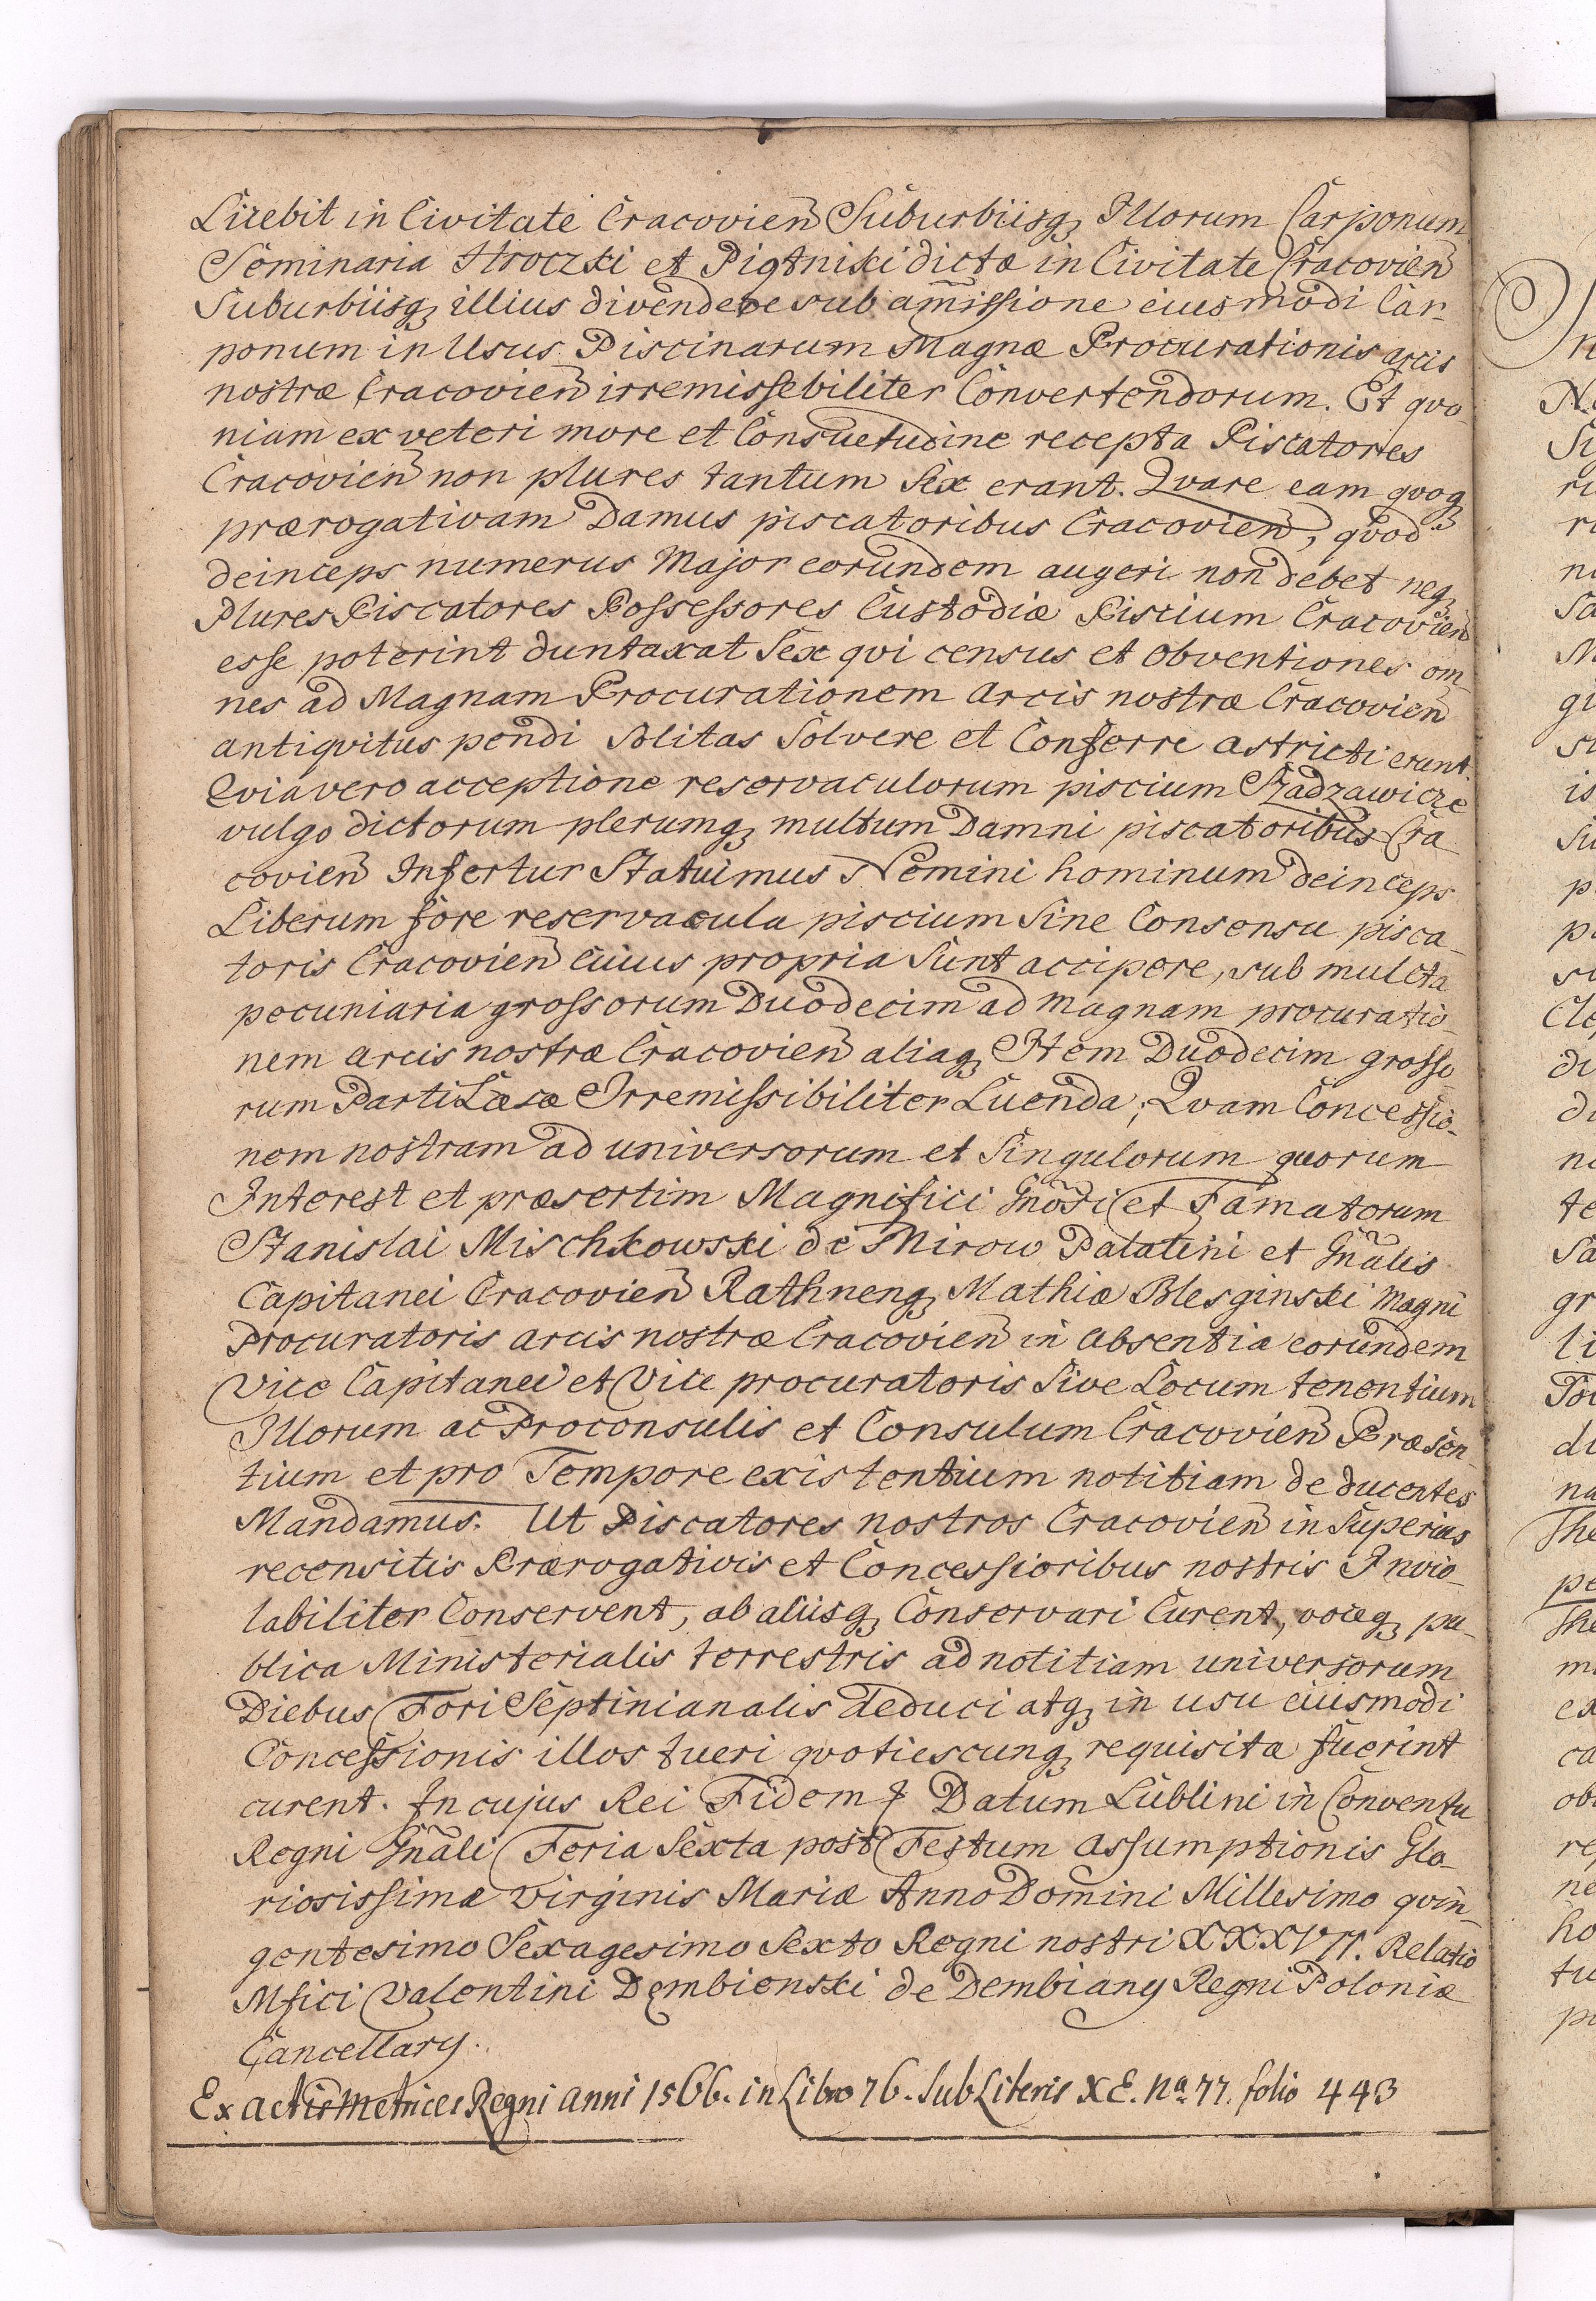 Licebit in Civitate Cracovien Suburbiisq Illorum Carponum
Seminaria Stroczki et Piątniki dicta in Civitate Cracovien
Suburbiisq illius divendere sub amissione eiusmodi Car-
ponum in Usus Piscinarum Magnæ Procurationis arcis
nostræ Cracovien irremissebiliter Convertendorum. Et qvo-
niam ex veteri more et Consuetudine recepta Piscatores
Cracovien non plures tantum Sex erant. Qvare eam qvoq
prærogativam Damus piscatoribus Cracovien, qvod
deinceps numerus Major eorundem augeri non debet neq
Plures Piscatores Possessores Custodiæ Piscium Cracovien
esse poterint duntaxat Sex qvi census et obventiones om-
nes ad Magnam Procurationem arcis nostræ Cracovien
antiqvitus pendi Solitas Solvere et Conferre astricti erunt.
Qvia vero acceptione reservaculorum piscium Szadzawicze
vulgo dictorum plerumq multum Damni piscatoribus Cra-
covien Infertur Statuimus Nemini hominum deinceps
Liberum fore reservacula piscium Sine Consensu pisca-
toris Cracovien cuius propria Sunt accipere, sub mulcta
pecuniaria grossorum Duodecim ad magnam procuratio-
nem arcis nostræ Cracovien aliaq Item Duodecim grosso-
rum Parti Læsæ Irremissibiliter Luenda; Qvam Concessio-
nem nostram ad universorum et Singulorum quorum
Interest et præsertim Magnifici Gnosi et Famatorum
Stanislai Mischkowski de Mirow Palatini et Gnalis
Capitanei Cracovien Rathneng Mathiæ Blesginski Magni
Procuratoris arcis nostræ Cracovien in absentia eorundem
Vice Capitanei et Vice procuratoris Sive Locum tenentium
Illorum ac Proconsulis et Consulum Cracovien Præsen-
tium et pro Tempore existentium notitiam deducentes
Mandamus. Ut Piscatores nostros Cracovien in Superius
recensitis Prærogativis et Concessioribus nostris Invio-
labiliter Conservent, ab aliisq Conservari Curent, voceq pu-
blica Ministerialis terrestris ad notitiam universorum
Diebus Fori Septinianalis deduci atq in usu eiusmodi
Concessionis illos tueri qvotiescunq requisita fuerint
curent. In cujus Rei Fidem Datum Lublini in Conventu
Regni Gnali Feria Sexta post Festum Assumptionis Glo-
riosissimæ Virginis Mariæ Anno Domini Millesimo qvin-
gentesimo Sexagesimo Sexto Regni nostri XXXVII. Relatio
Mfici Valentini Dembienski de Dembiany Regni Poloniæ
Cancellary.
Ex actis Metrices Regni anni 1566. in Libro 76. Sub Literis XE. No. 77. folio 443